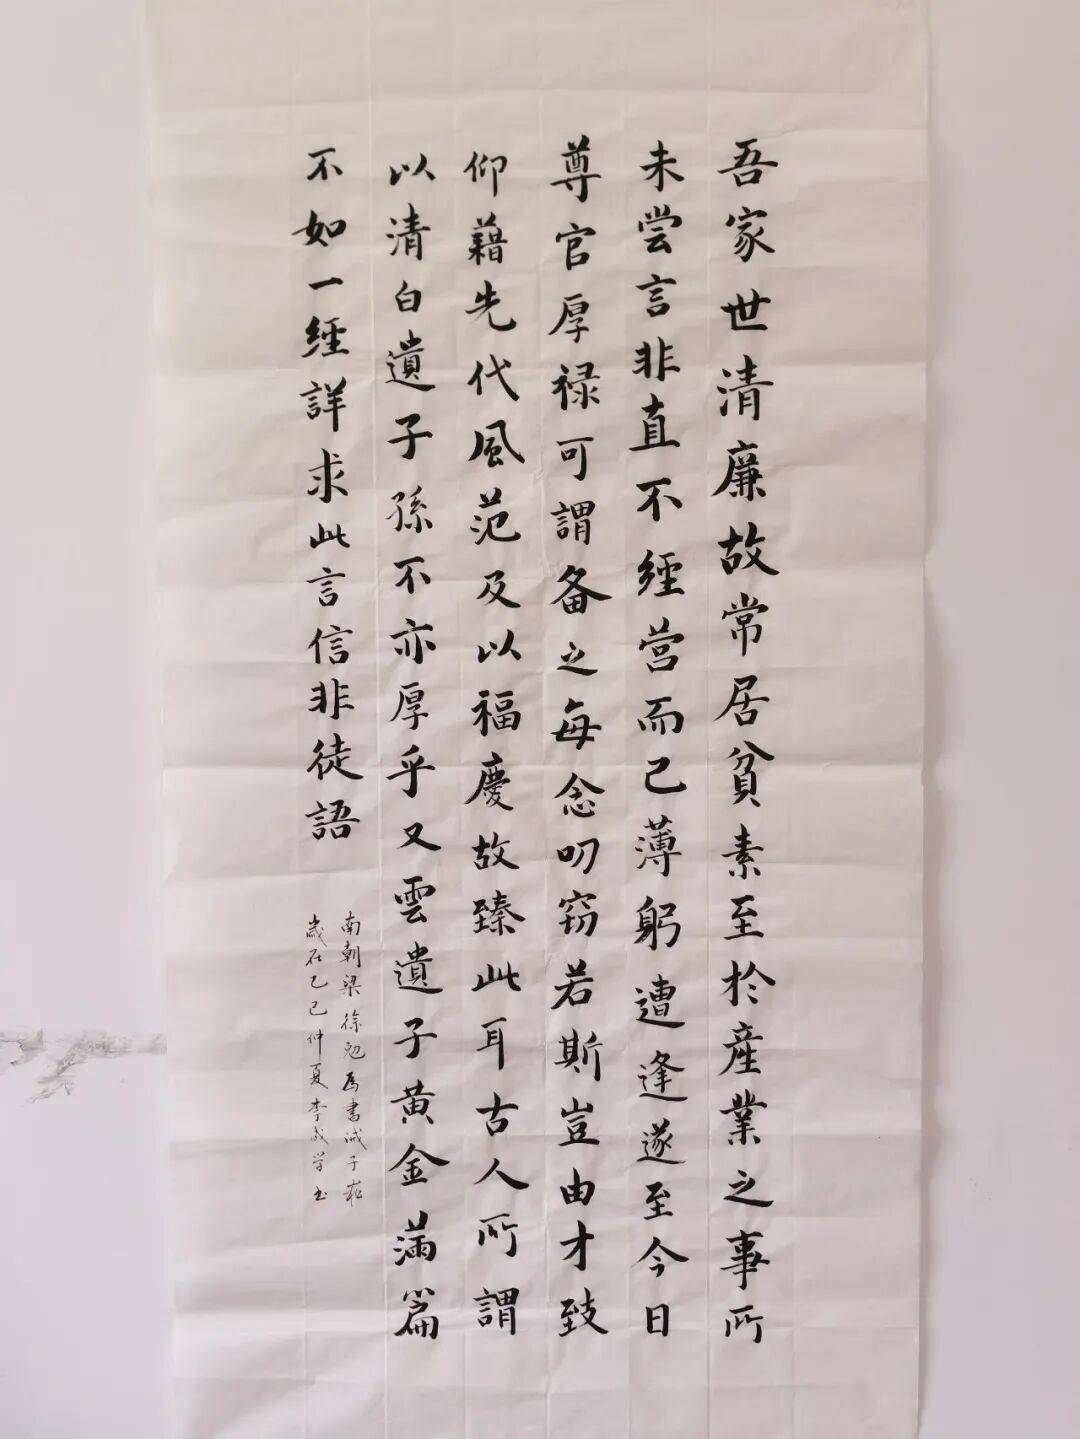 吾家世清廉故常居貧素至於産業之事所
未嘗言非直不經营而已薄躬遭逢遂至今日
尊官厚禄可謂备之每念叨窃若斯豈由才致
仰藉先代風范及以福慶故臻此耳古人所謂
以清白遺子孫不亦厚乎又雲遺子黄金满篇
不如一經詳求此言信非徒語
南朝梁徐勉為書诫子崧
歲在乙巳仲夏李成学书